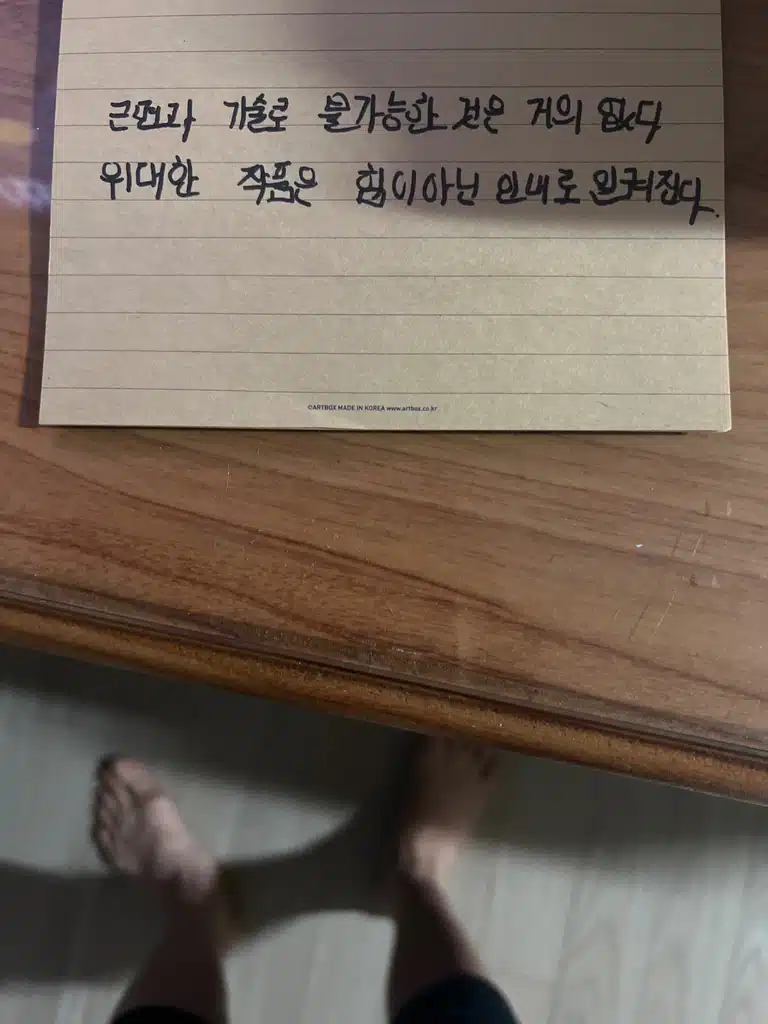 근면과 기술로 불가능한 것은 거의 없다
위대한 작품은 힘이아닌 인내로 일궈진다.
©ARTBOX MADE IN KOREA www.artbox.co.kr